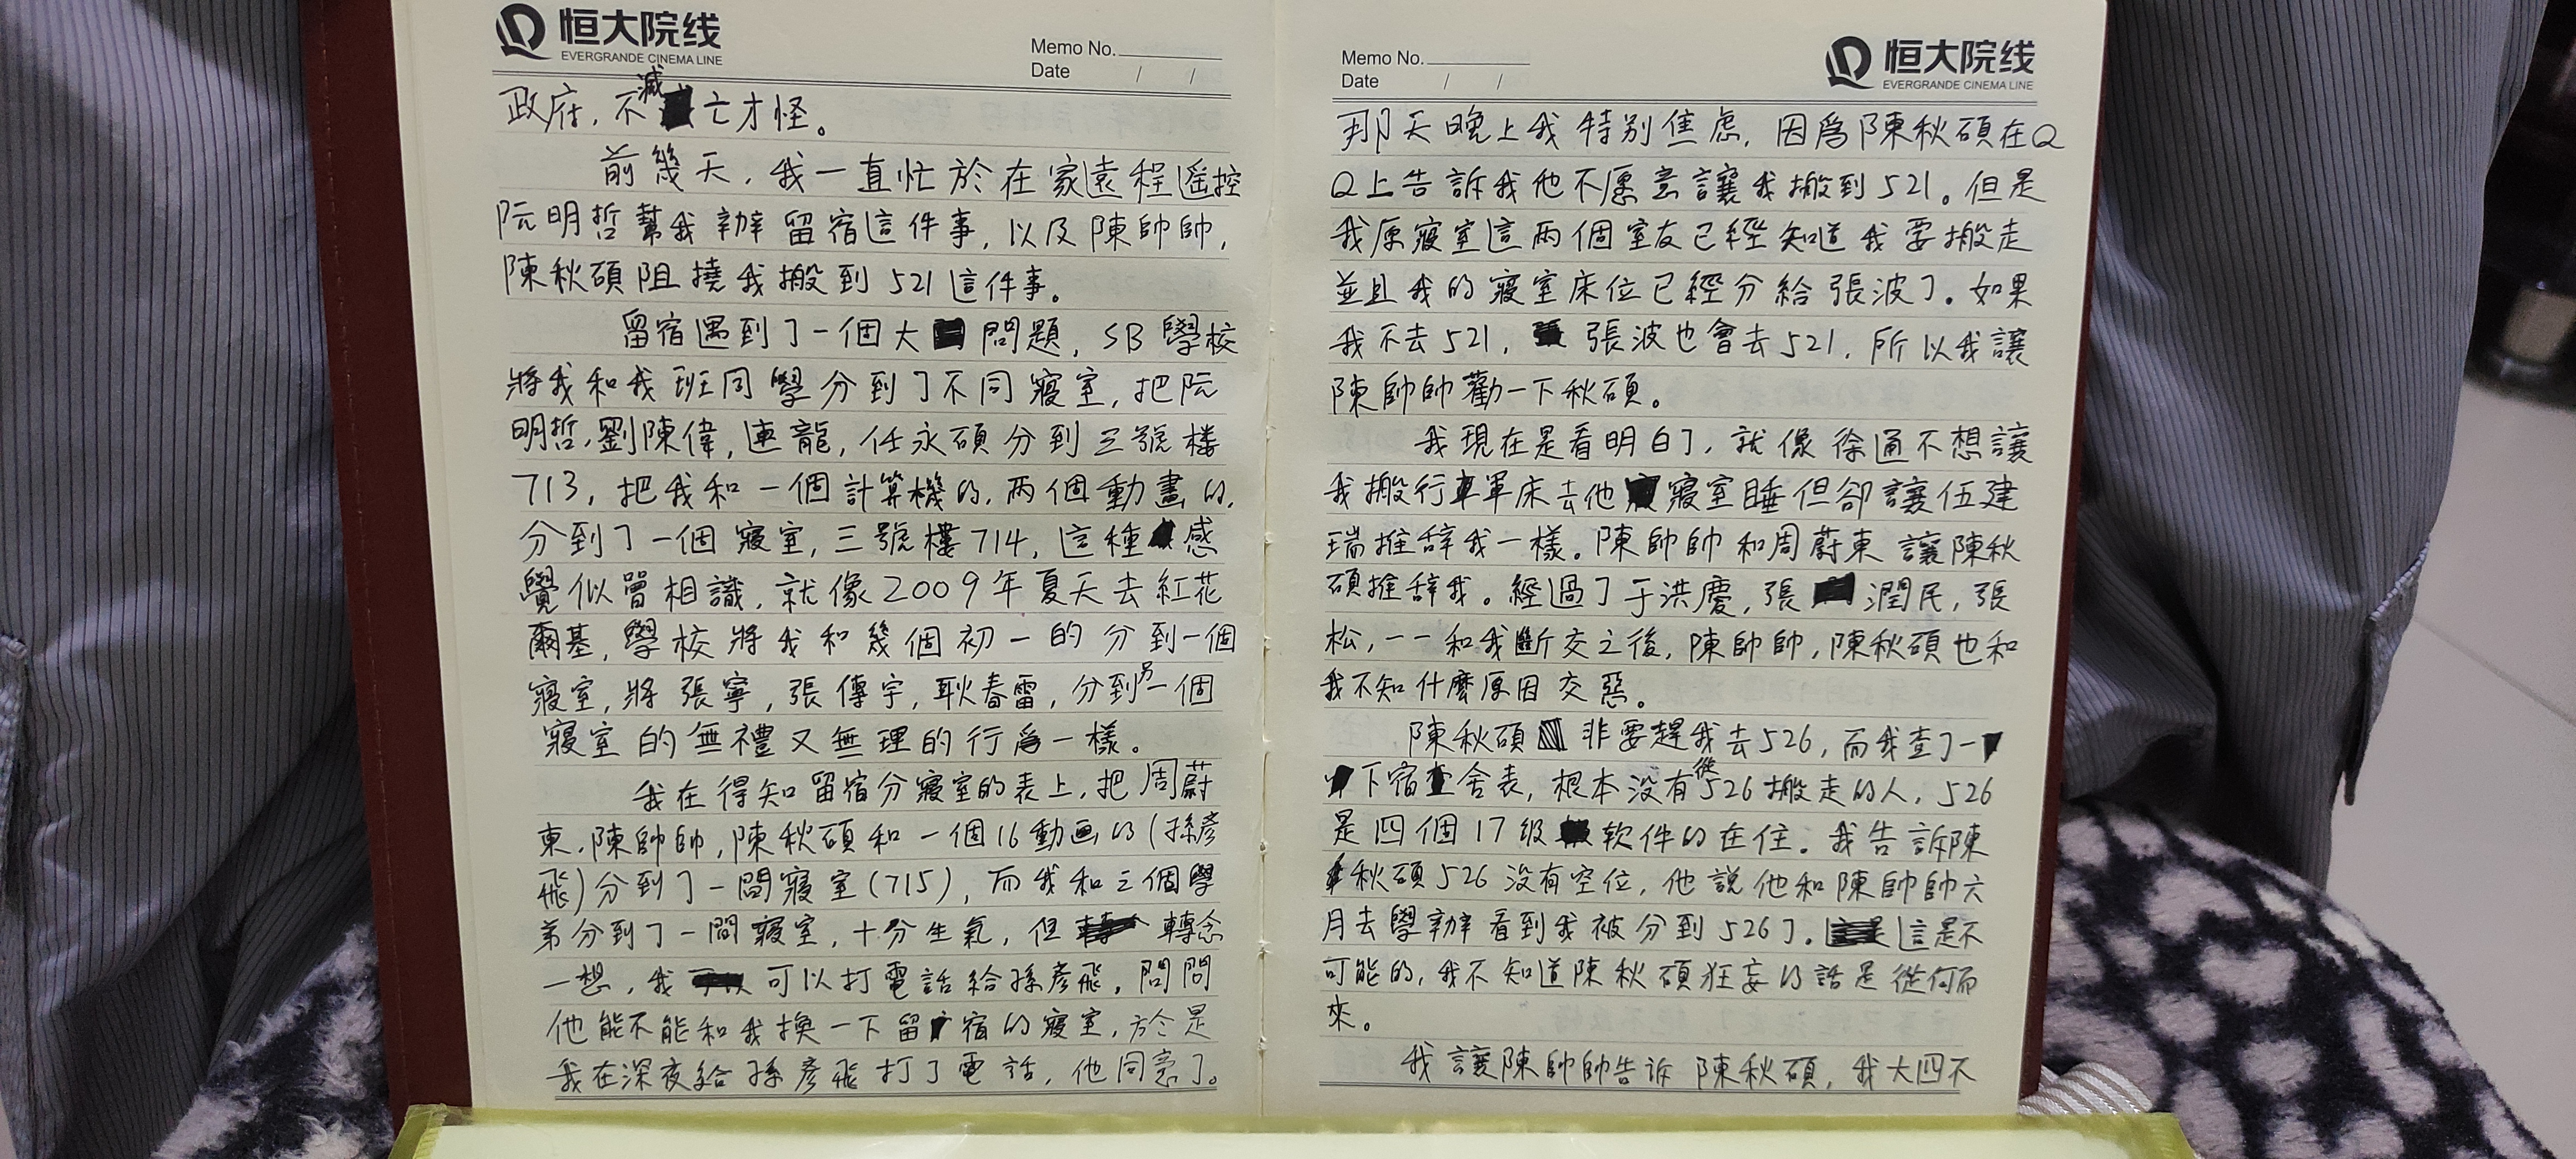 恒大院线
EVERGRANDE CINEMA LINE
Memo No.
Date / /
政府，不滅亡才怪。
前幾天，我一直忙於在家遠程遥控
阮明哲幫我辦留宿這件事，以及陳帥帥，
陳秋碩阻撓我搬到521這件事。
留宿遇到了一個大問題，SB學校
將我和我班同學分到了不同寢室，把阮
明哲，劉陳偉，連龍，任永碩分到三號樓
713，把我和一個計算機的，两個動畫的，
分到了一個寢室，三號樓714，這種感
覺似曾相識，就像2009年夏天去紅花
爾基，學校將我和幾個初一的分到一個
寢室，將張寧，張傳宇，耿春雷，分到另一個
寢室的無禮又無理的行為一樣。
我在得知留宿分寢室的表上，把周蔚
東，陳帥帥，陳秋碩和一個16動画的(孫彦
飛)分到了一間寢室(715)，而我和三個學
弟分到了一間寢室，十分生氣，但轉念
一想，我可以打電話給孫彦飛，問問
他能不能和我換一下留宿的寢室，於是
我在深夜給孫彦飛打了電話，他同意了。
Memo No.
Date / /
恒大院线
EVERGRANDE CINEMA LINE
那天晚上我特别焦虑，因為陳秋碩在Q
Q上告訴我他不愿意讓我搬到521。但是
我原寢室這两個室友已經知道我要搬走
並且我的寢室床位已經分給張波了。如果
我不去521，張波也會去521，所以我讓
陳帥帥勸一下秋碩。
我現在是看明白了，就像徐通不想讓
我搬行軍床去他寢室睡但卻讓伍建
瑞推辞我一樣。陳帥帥和周蔚東讓陳秋
碩推辞我。經過了于洪慶，張潤民，張
松，一一和我斷交之後，陳帥帥，陳秋碩也和
我不知什麼原因交惡。
陳秋碩非要趕我去526，而我查了一
下宿舍表，根本没有從526搬走的人，526
是四個17级软件的在住。我告訴陳
秋碩526没有空位，他説他和陳帥帥六
月去學辦看到我被分到526了。這是不
可能的，我不知道陳秋碩狂妄的話是從何而
來。
我讓陳帥帥告诉陳秋碩，我大四不